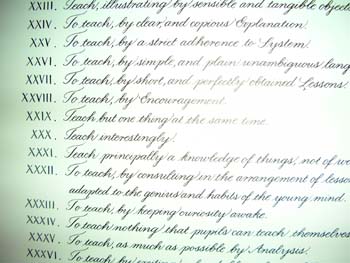 XXIII. Teach, illustrating by sensible and tangible objects
XXIV. To teach, by clear and copious Explanation.
XXV. To teach, by a strict adherence to System.
XXVI. To teach, by simple, and plain unambiguous lang
XXVII. To teach, by short, and perfectly obtained Lessons.
XXVIII. To teach, by Encouragement.
XXIX. Teach but one thing at the same time.
XXX. Teach interestingly.
XXXI. Teach principally a knowledge of things, not of wo
XXXII. To teach, by consulting in the arrangement of lesso
adapted to the genius and habits of the young mind.
XXXIII. To teach, by keeping curiosity awake.
XXXIV. To teach nothing that pupils can teach themselves
XXXV. To teach, as much as possible by Analysis.
XXXVI. To teach, by